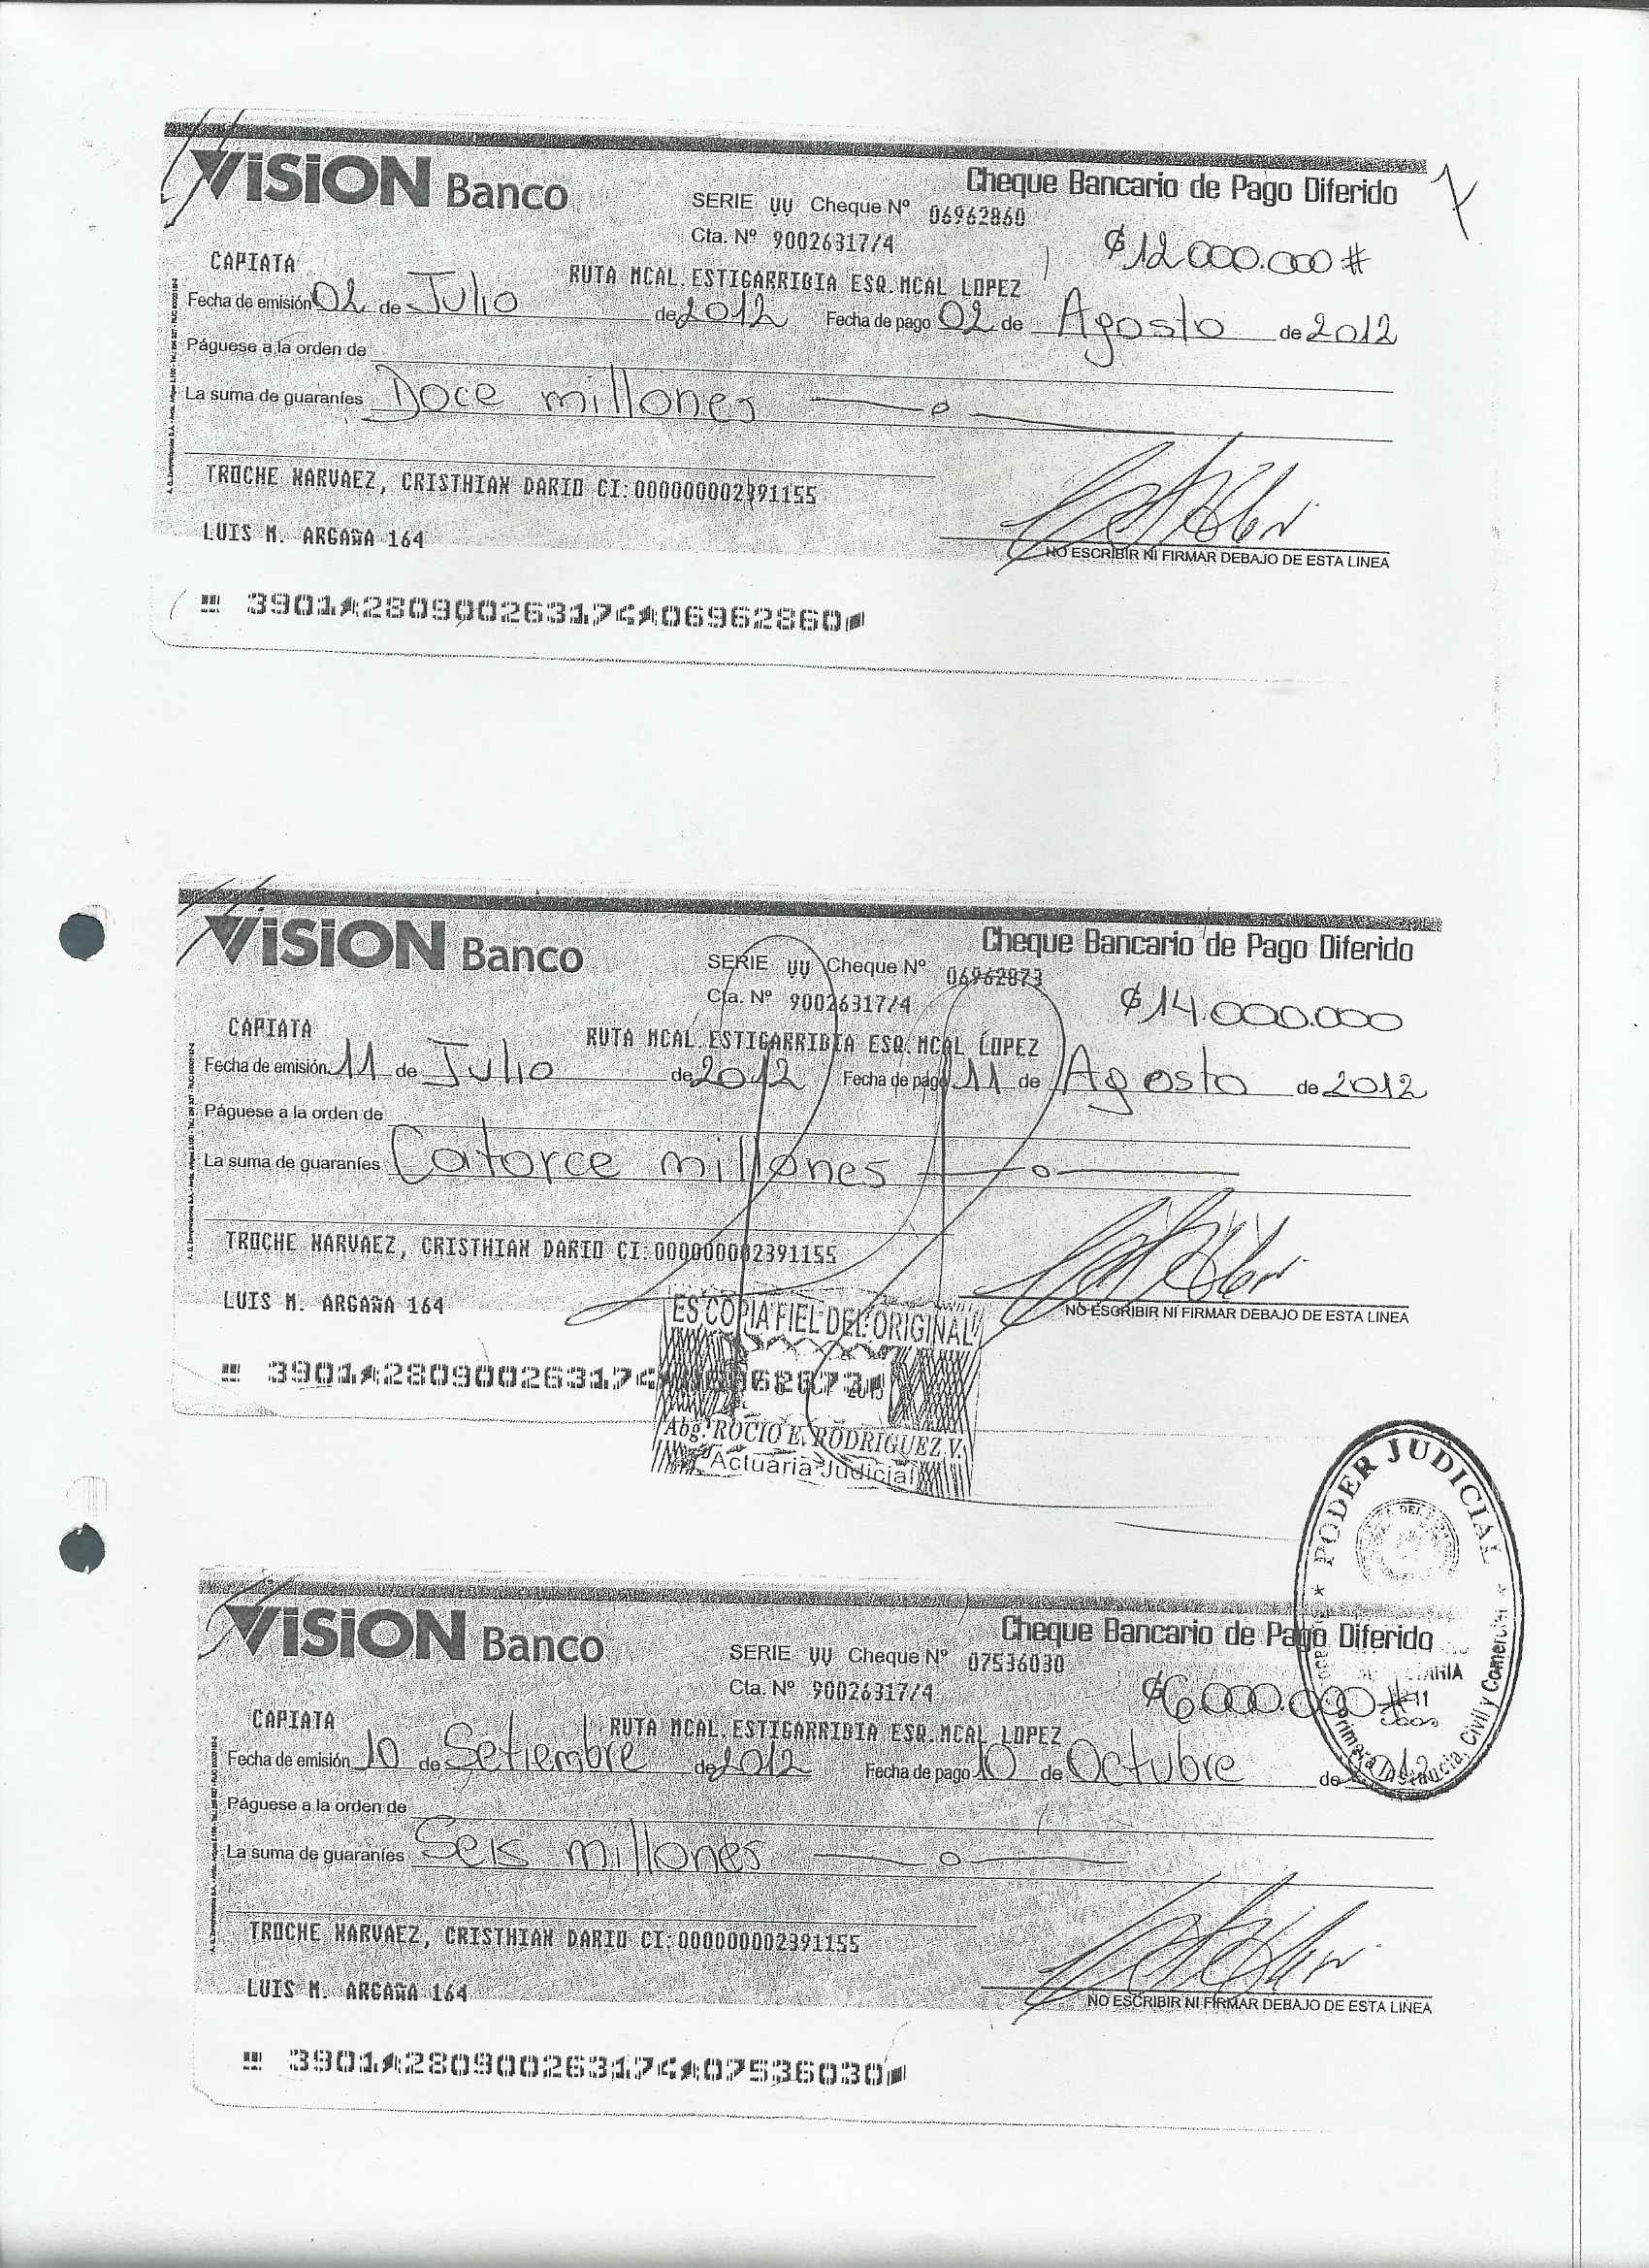 ViSiON Banco
Cheque Bancario de Pago Diferido
SERIE UU Cheque Nº 06962860
Cta. Nº 90026317/4
₲ 12.000.000 #
CAPIATA
RUTA MCAL. ESTIGARRIBIA ESQ. MCAL LOPEZ
Fecha de emisión 02 de Julio de 2012 Fecha de pago 02 de Agosto de 2012
Páguese a la orden de
La suma de guaraníes Doce millones
TROCHE NARVAEZ, CRISTHIAN DARIO CI:000000002391155
LUIS M. ARGAÑA 164
NO ESCRIBIR NI FIRMAR DEBAJO DE ESTA LINEA
3901 280900263174 06962860
ViSiON Banco
Cheque Bancario de Pago Diferido
SERIE UU Cheque Nº 06962873
Cta. Nº 90026317/4
₲ 14.000.000
CAPIATA
RUTA MCAL. ESTIGARRIBIA ESQ. MCAL LOPEZ
Fecha de emisión 11 de Julio de 2012 Fecha de pago 11 de Agosto de 2012
Páguese a la orden de
La suma de guaraníes Catorce millones
TROCHE NARVAEZ, CRISTHIAN DARIO CI:000000002391155
LUIS M. ARGAÑA 164
NO ESCRIBIR NI FIRMAR DEBAJO DE ESTA LINEA
ES COPIA FIEL DEL ORIGINAL
3901 280900263174
Abg. ROCIO E. RODRIGUEZ V.
Actuaria Judicial
PODER JUDICIAL
Primera Instancia, Civil y Comercial
ViSiON Banco
Cheque Bancario de Pago Diferido
SERIE UU Cheque Nº 07536030
Cta. Nº 90026317/4
₲ 6.000.000 #
CAPIATA
RUTA MCAL. ESTIGARRIBIA ESQ. MCAL LOPEZ
Fecha de emisión 10 de Setiembre de 2012 Fecha de pago 10 de Octubre de 2012
Páguese a la orden de
La suma de guaraníes Seis millones
TROCHE NARVAEZ, CRISTHIAN DARIO CI:000000002391155
LUIS M. ARGAÑA 164
NO ESCRIBIR NI FIRMAR DEBAJO DE ESTA LINEA
3901 280900263174 07536030